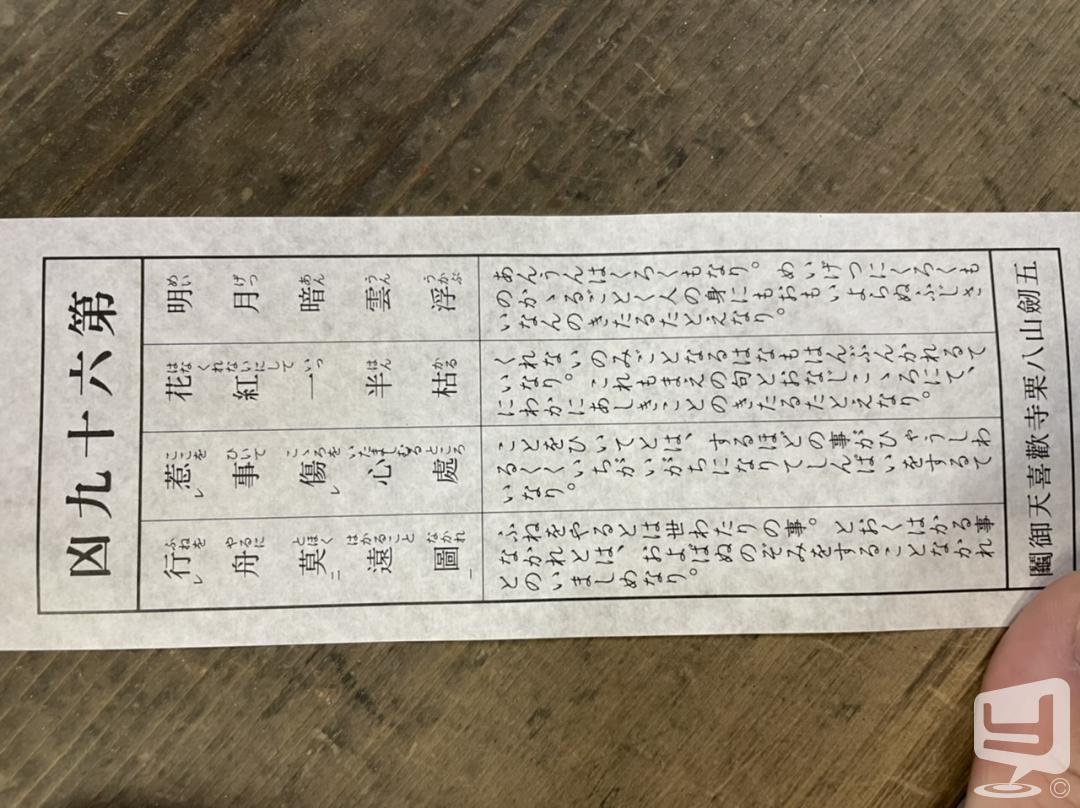 第六十九凶
明月暗雲浮
花紅一半枯
惹事傷心處
行舟莫遠圖
あんうんはくろくもなり。めいげつにくろくも
のかゝるごとく人の身にもおもいよらぬふじき
いなんのきたるたとえなり。
くれないのみごとなるはなもはんぶんかれるて
いなり。これもまえの句とおなじこゝろにて、
にわかにあしきことのきたるたとえなり。
ことをひいてとは、するほどの事がひゃうしわ
るくくいちがいがちになりてしんぱいをするて
いなり。
ふねをやるとは世わたりの事。とおくはかる事
なかれとは、およばぬのぞみをすることなかれ
とのいましめなり。
五劔山八栗寺歡喜天御鬮